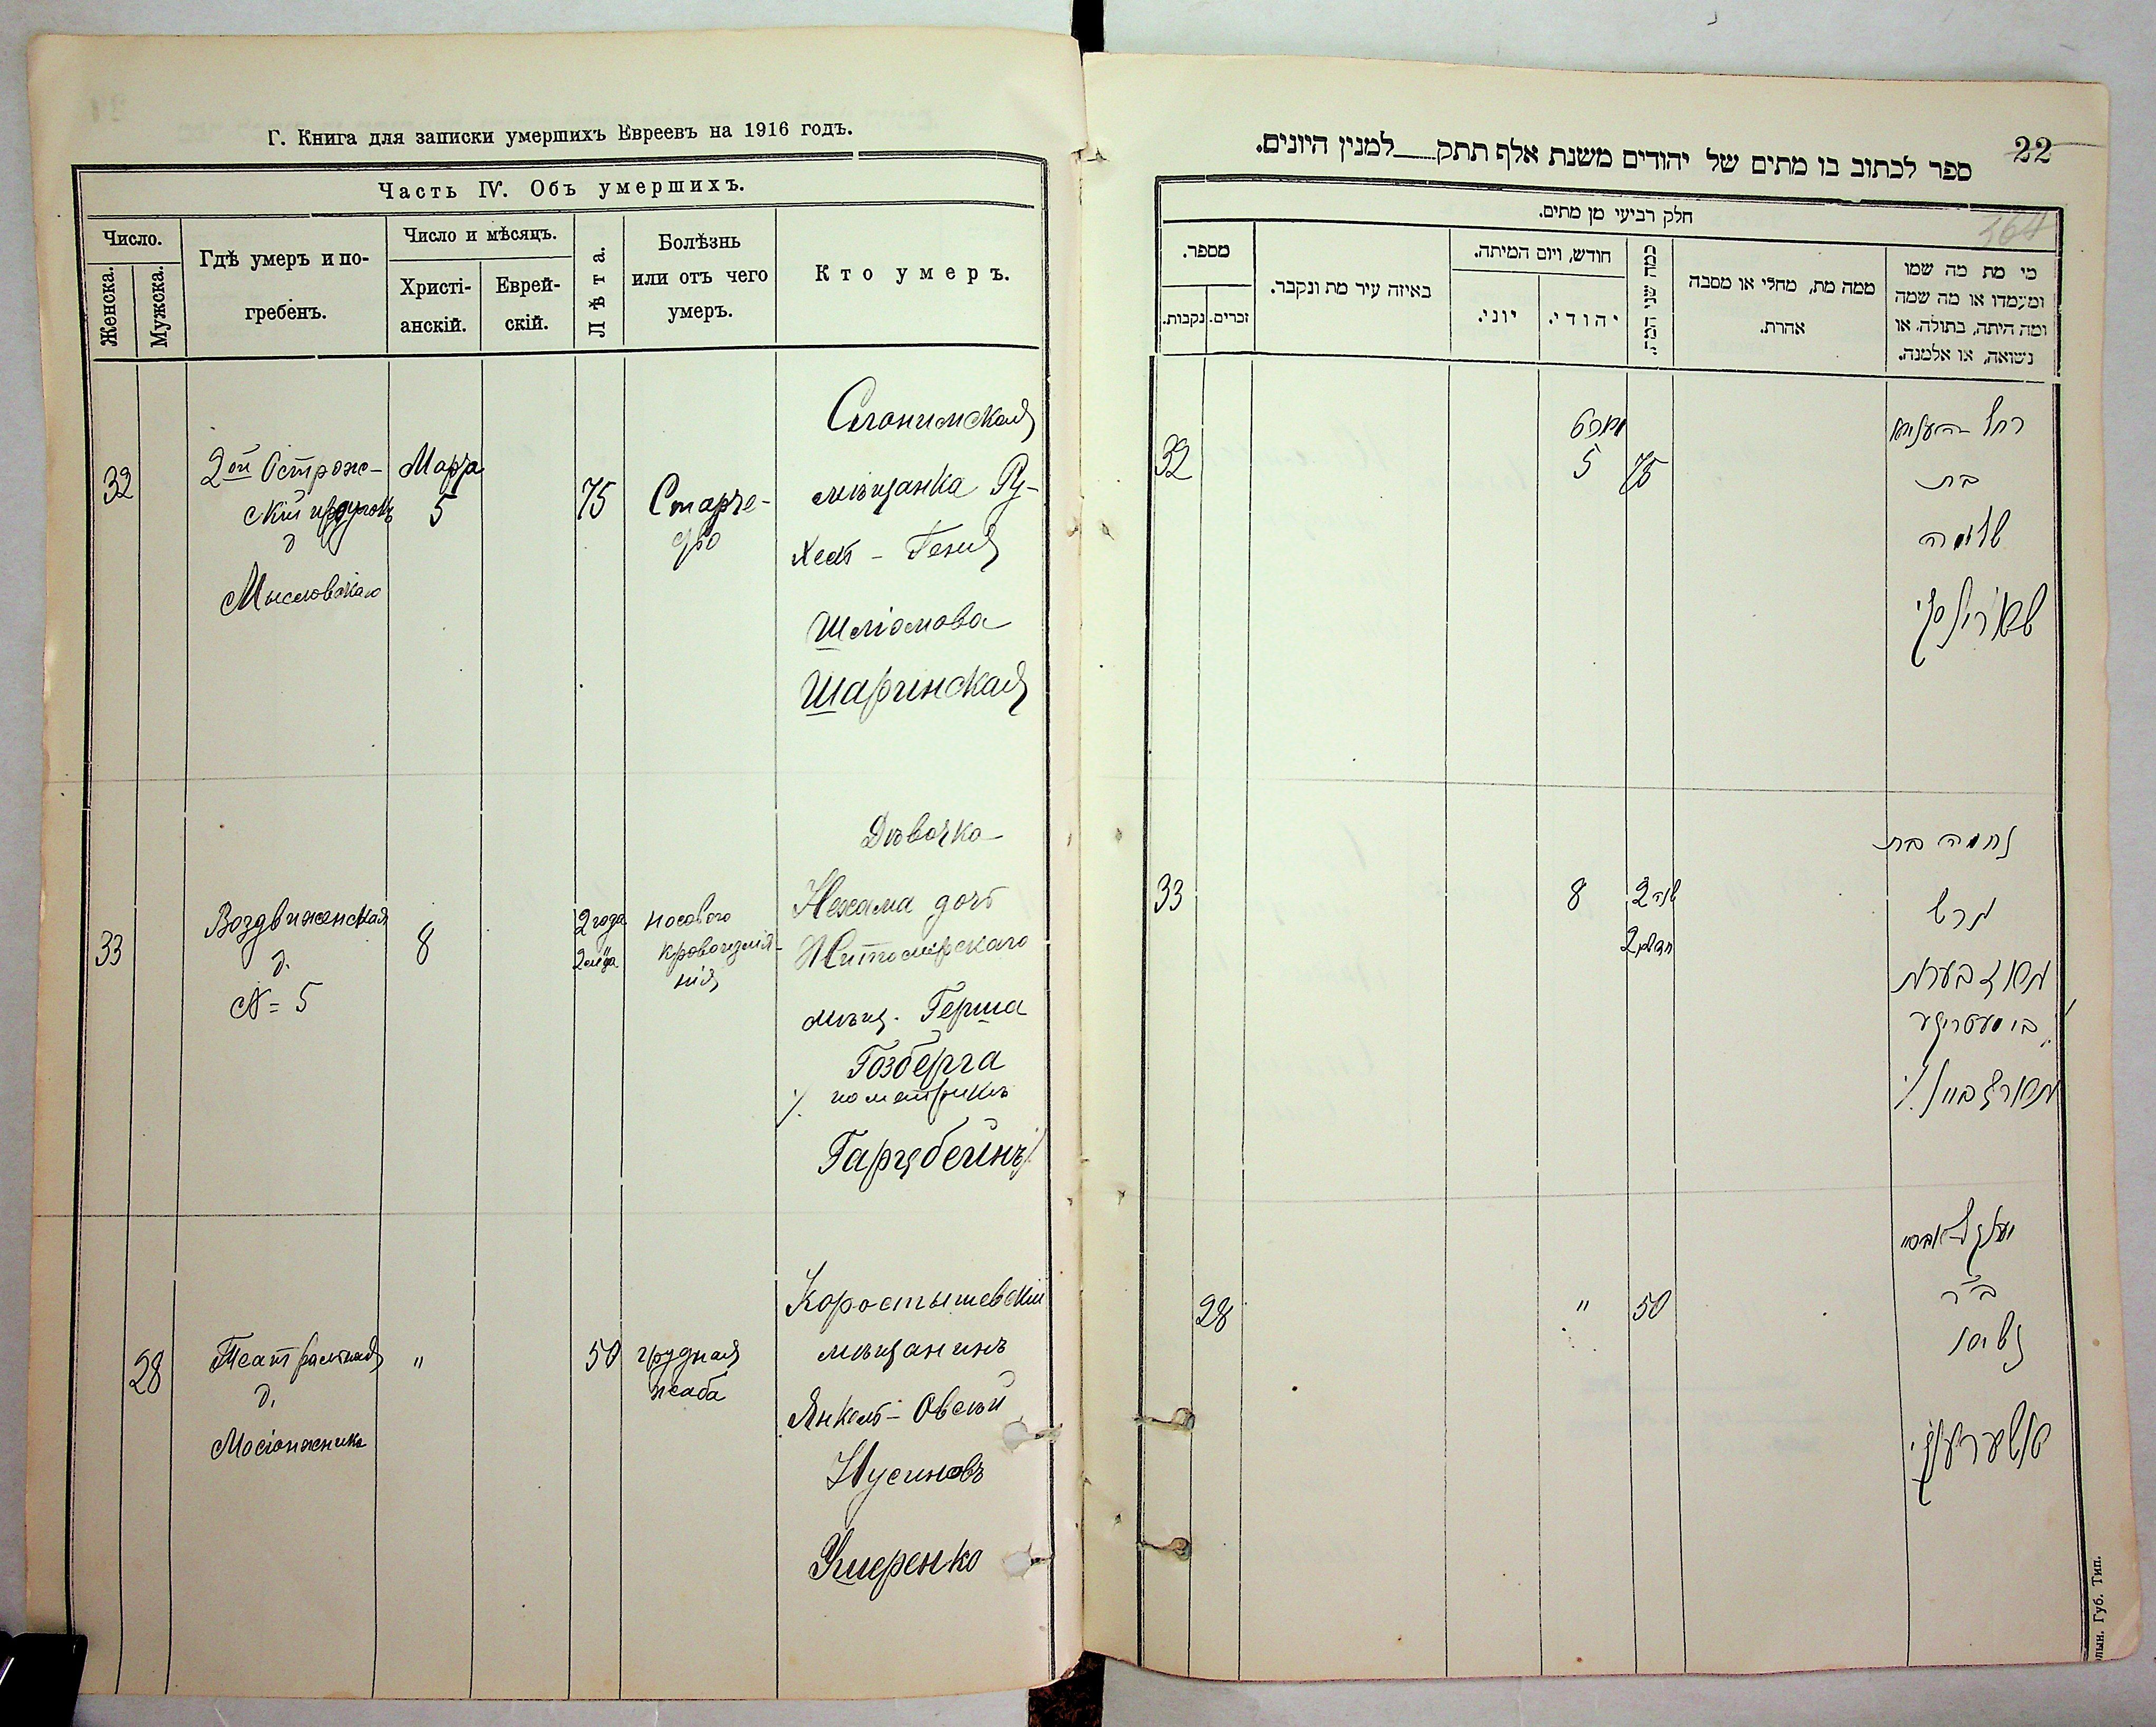 Г. Книга для записки умершихъ Евреевъ на 1916 годъ.
Часть IV. Объ умершихъ.
Число.
Женска.
Мужска.
Гдѣ умеръ и по-
гребенъ.
Число и мѣсяцъ.
Христі-
анскій.
Еврей-
скій.
Лѣта.
Болѣзнь
или отъ чего
умеръ.
Кто умеръ.
32
2ой Острож-
скій
д
Мысловскаго
Марта
5
75
Старче-
ство
Слонимская
мѣщанка Ру-
хель - Геня
Шліомова
Шаринская
33
Воздвиженская
д.
№ = 5
8
2 года
2 м-ца
носового
кровотеченія
Дѣвочка
Нехама дочь
Житомирскаго
мѣщ. Герша
Гозберга
/. по метрикѣ
Гарцбейнъ /.
28
Театральная
д.
"
50
грудная
жаба
Коростышевскій
мѣщанинъ
Янкель - Овсѣй
Нусиновъ
Ушеренко
22
364
ספר לכתוב בו מתים של יהודים משנת אלף תתק למנין היונים.
חלק רביעי מן מתים.
מספר.
נקבות.
זכרים.
באיזה עיר מת ונקבר.
חודש, ויום המיתה.
יוני.
יהודי.
כמה שני המת.
ממה מת, מחלי או מסבה
אהרת.
מי מת מה שמו
ומעמדו או מה שמה
ומה היתה, בתולה, או
נשואה, או אלמנה.
32
מארט
5
75
רחל
בת
שלמה
33
8
2 שנה
2 חדשים
נחמה בת
הרש
האזבערג
הארצביין /.
28
"
50
יענקל
ב"ר
נוסן
אושערענקי
Губ. Тип.